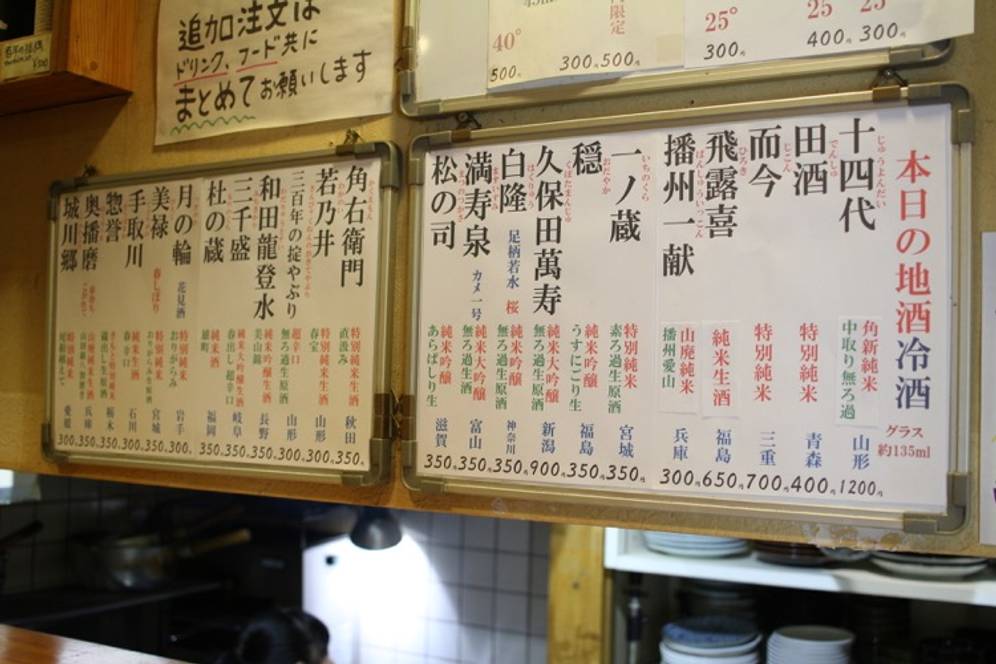 追加注文は
ドリンク、フード共に
まとめてお願いします
40°
500円
300円
500円
限定
25°
300円
25
400円
25
300円
本日の地酒冷酒
グラス
約135ml
十四代
じゅうよんだい
角新純米
中取り無ろ過
山形
1200円
田酒
でんしゅ
特別純米
青森
400円
而今
じこん
特別純米
三重
700円
飛露喜
ひろき
純米生酒
福島
650円
播州一献
ばんしゅういっこん
山廃純米
播州愛山
兵庫
300円
一ノ蔵
いちのくら
特別純米
素ろ過生酒
宮城
350円
穏
おだやか
純米吟醸
うすにごり生
福島
350円
久保田萬寿
くぼたまんじゅ
純米大吟醸
無ろ過生原酒
新潟
900円
白隆
はくりゅう
足柄若水 桜
純米吟醸
無ろ過生原酒
神奈川
350円
満寿泉
ますいずみ
カメ一号
純米大吟醸
無ろ過生酒
富山
350円
松の司
純米吟醸
あらばしり生
滋賀
350円
角右衛門
特別純米
直汲み
秋田
350円
若乃井
特別純米生酒
春宝
山形
300円
三百年の掟やぶり
超辛口
無ろ過生原酒
山形
300円
和田龍登水
純米吟醸生酒
美山錦
長野
350円
三千盛
純米大吟醸生酒
春出し 超辛口
岐阜
350円
杜の蔵
純米酒
雄町
福岡
350円
月の輪
花見酒
特別純米
おりがらみ
岩手
350円
美禄
春しぼり
特別純米酒
宮城
350円
手取川
春出し 辛口
石川
350円
惣誉
栃木
350円
奥播磨
兵庫
350円
城川郷
特別純米
愛媛
300円